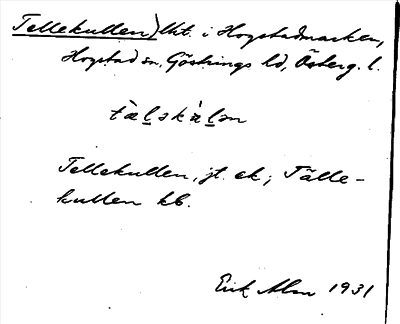 Tellekullen) lht. i Hogstadmarken,
Hogstad sn, Göstrings hd, Österg. l.
tæ̀l̲əkàl̲ən
Tellekullen, jt. ek.; Tälle-
kullen kb.
Erik Alm 1931